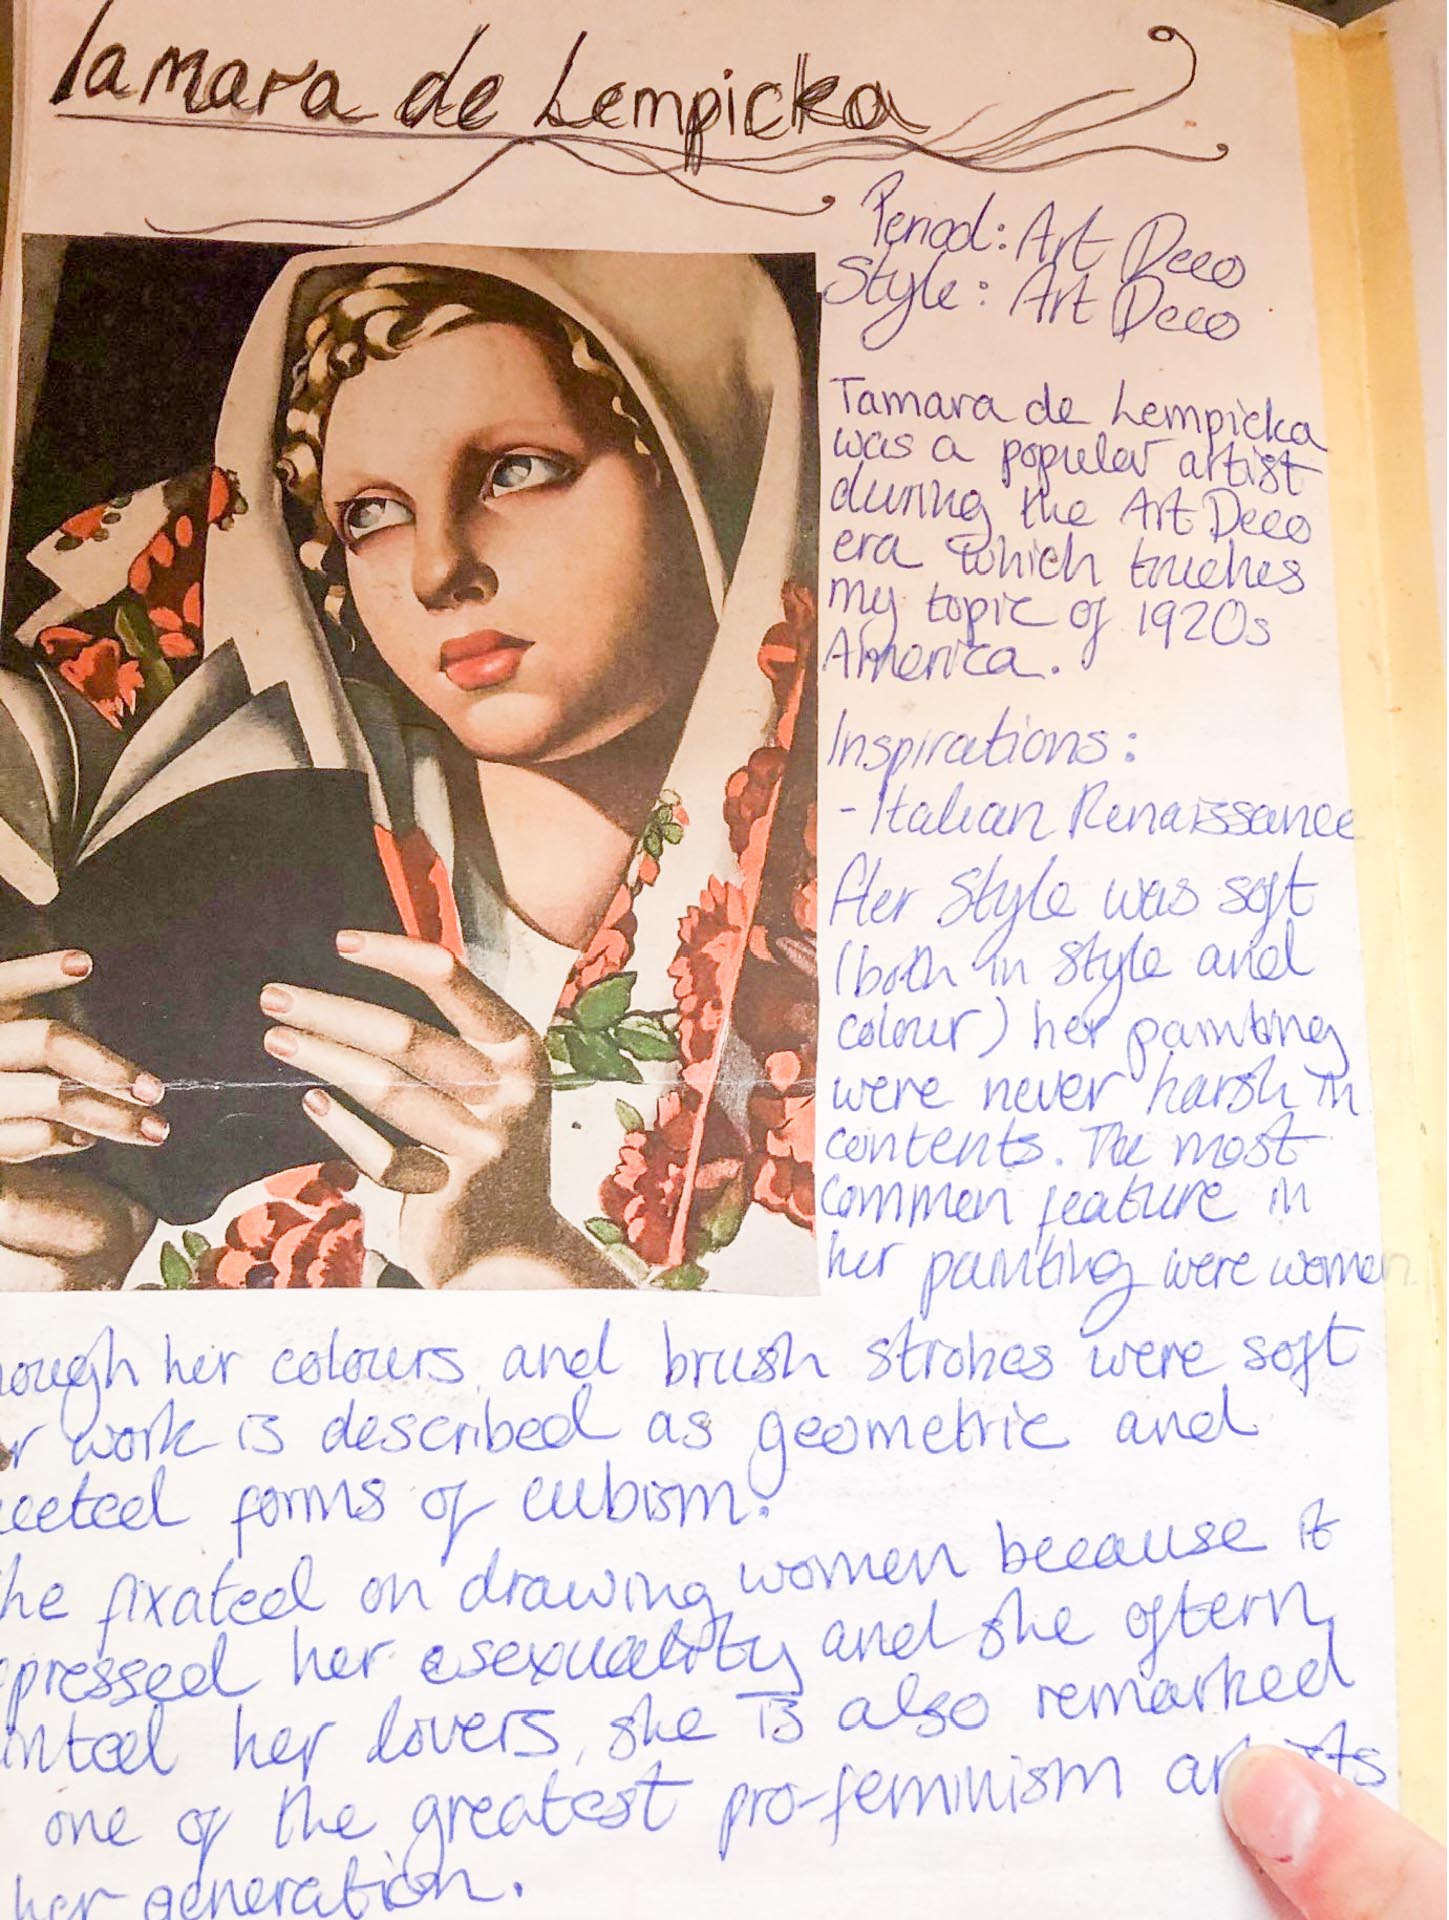 Tamara de Lempicka
Period: Art Deco
Style: Art Deco
Tamara de Lempicka
was a popular artist
during the Art Deco
era which touches
my topic of 1920s
America.
Inspirations:
- Italian Renaissance
Her style was soft
(both in style and
colour) her painting
were never harsh in
contents. The most
common feature in
her painting were women
hough her colours and brush strokes were soft
r work is described as geometric and
ceted forms of cubism.
he fixated on drawing women because it
pressed her sexuality and she oftern
inted her lovers, she is also remarked
one of the greatest pro-feminism artists
her generation.